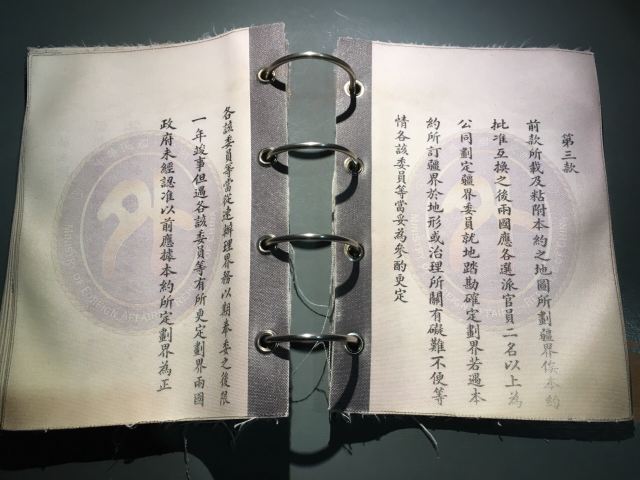 第三款
前款所載及粘附本約之地圖所劃疆界俟本約
批准互換之後兩國應各選派官員二名以上為
公同劃定疆界委員就地踏勘確定劃界若遇本
約所訂疆界於地形或治理所關有礙難不便等
情各該委員等當妥為參酌更定
各該委員等當從速辦理界務以期奉委之後限
一年竣事但遇各該委員等有所更定劃界兩國
政府未經認准以前應據本約所定劃界為正
OF FOREIGN AFFAIRS